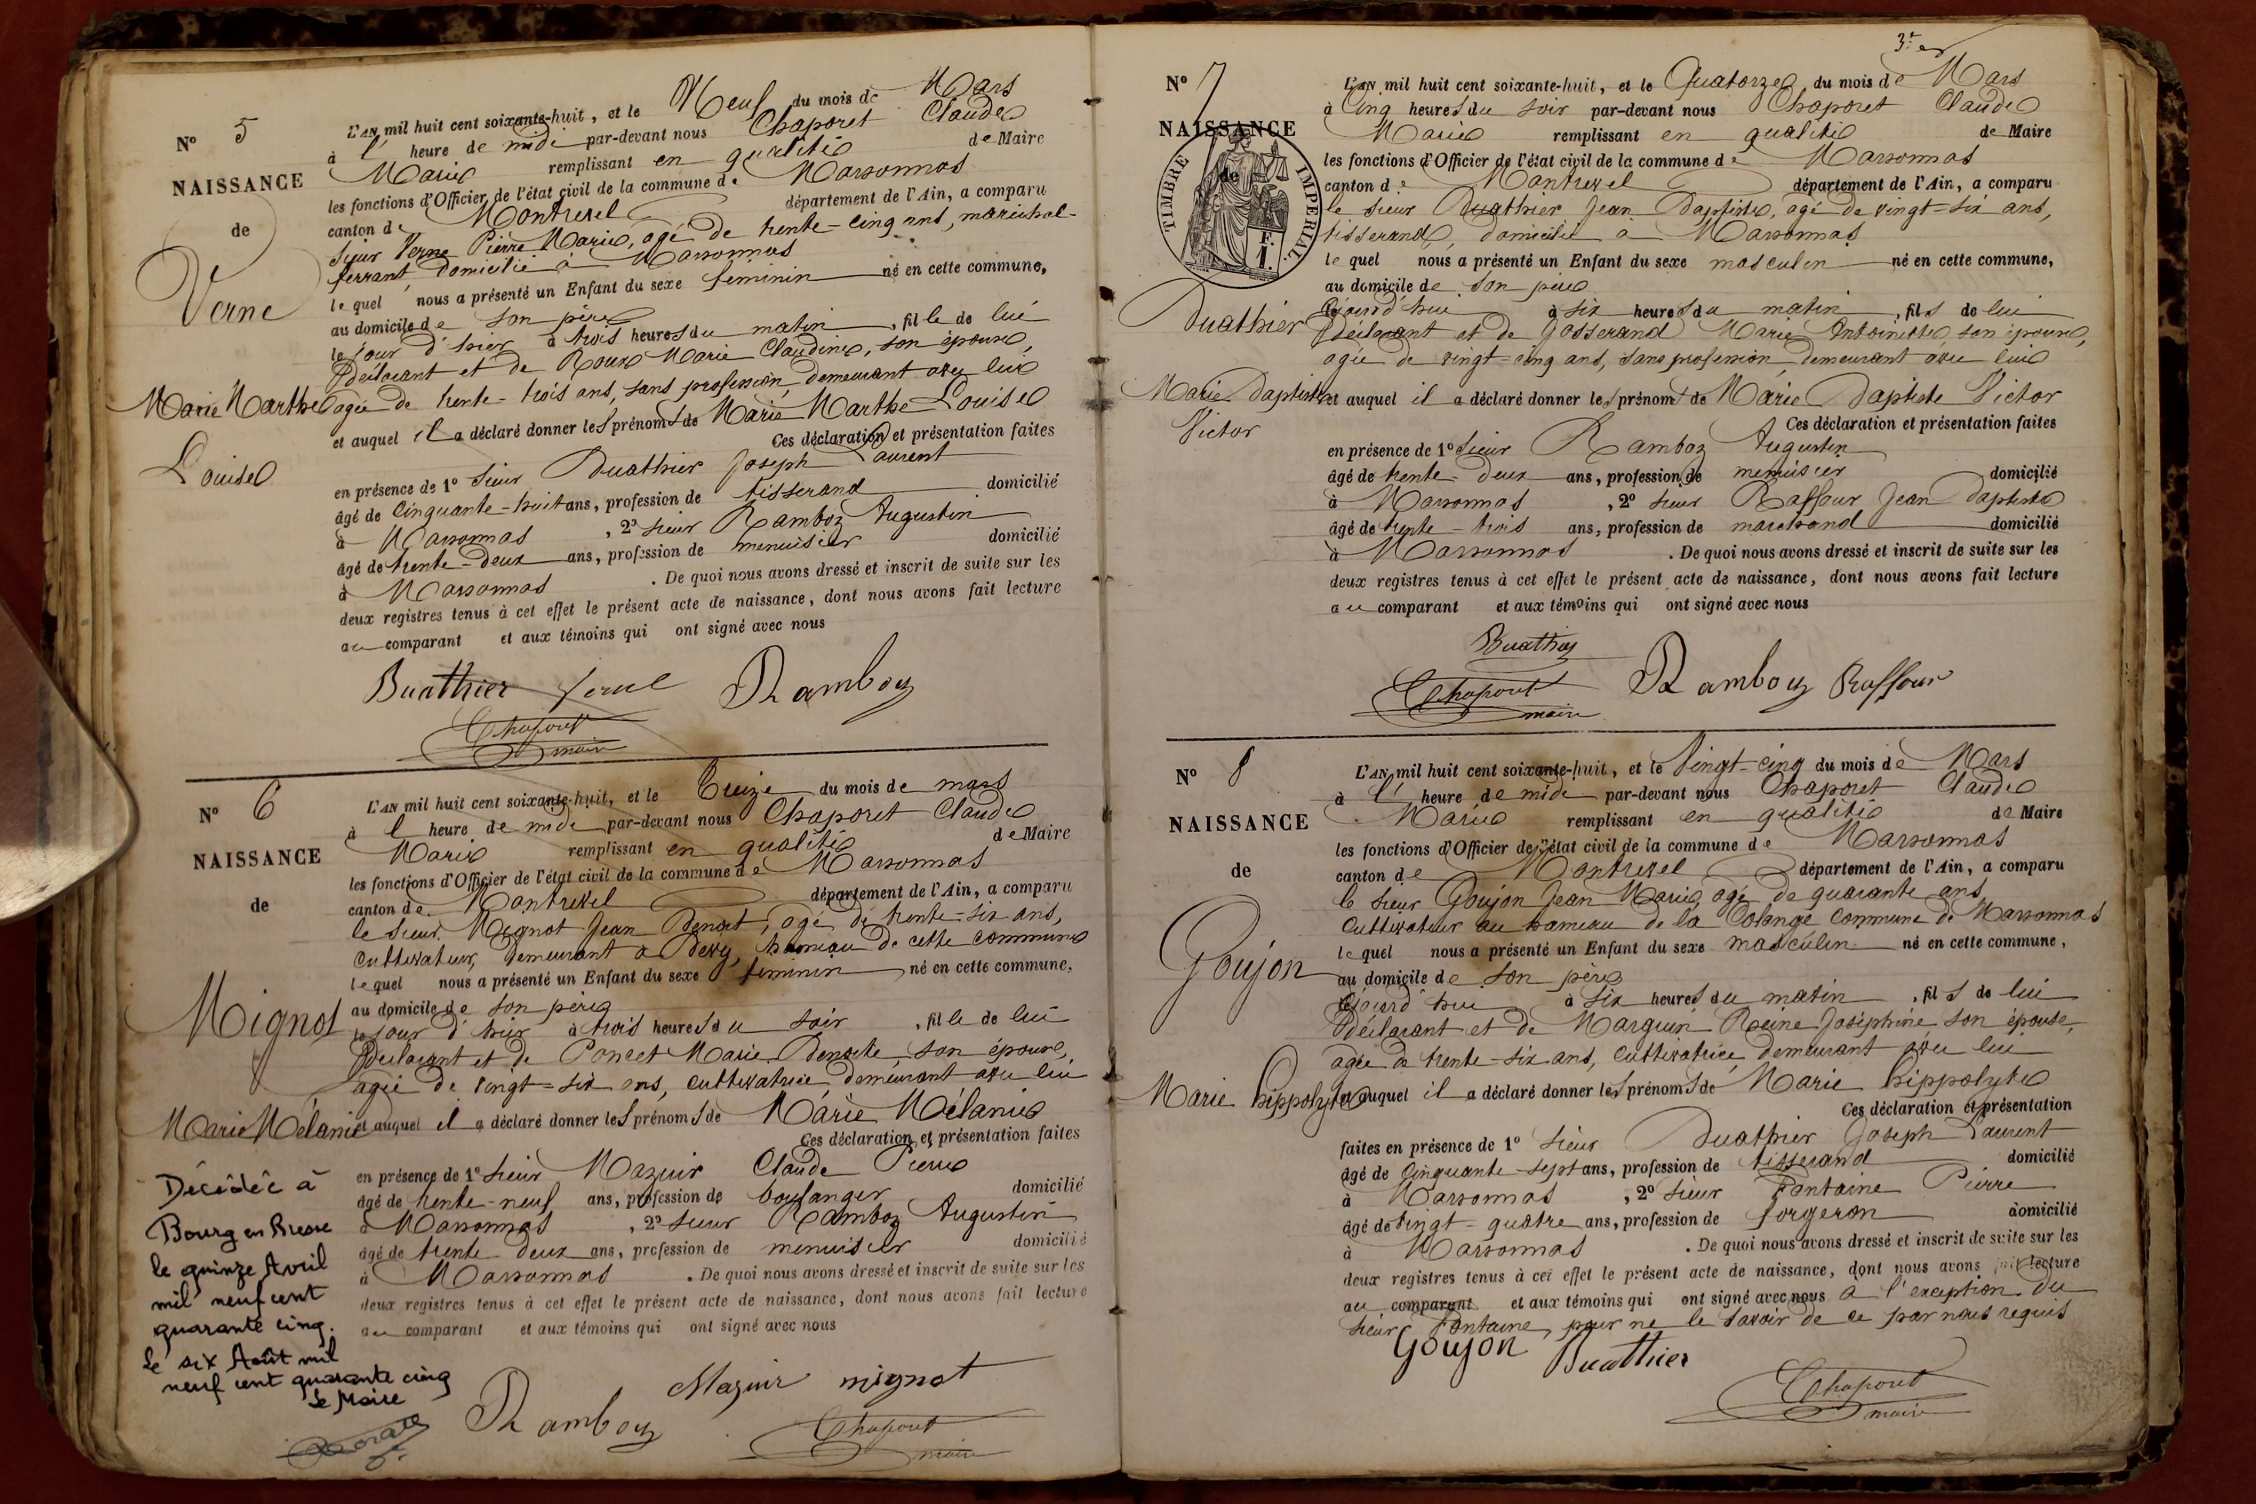 N° 5
NAISSANCE
de
Verne
Marie Marthe
Louise
L'AN mil huit cent soixante-huit, et le Neuf du mois de Mars
à l' heure de midi par-devant nous Chaporet Claude
Marie remplissant en qualité de Maire
les fonctions d'Officier de l'état civil de la commune de Marsonnas
canton de Montrevel département de l'Ain, a comparu
Sieur Verne Pierre Marie, agé de trente-cinq ans, maréchal-
ferrant, domicilié à Marsonnas
le quel nous a présenté un Enfant du sexe feminin né en cette commune,
au domicile de son père
le jour d'hier à trois heures du matin, fille de lui
déclarant et de Roux Marie Claudine, son épouse,
agée de trente-trois ans, sans profession, demeurant avec lui
et auquel il a déclaré donner les prénoms de Marie Marthe Louise
Ces déclaration et présentation faites
en présence de 1° Sieur Buathier Joseph Laurent
âgé de cinquante-huit ans, profession de tisserand domicilié
à Marsonnas, 2° sieur Ramboz Augustin
âgé de trente-deux ans, profession de menuisier domicilié
à Marsonnas. De quoi nous avons dressé et inscrit de suite sur les
deux registres tenus à cet effet le présent acte de naissance, dont nous avons fait lecture
au comparant et aux témoins qui ont signé avec nous
Buathier Verne Ramboz
Chaporet
maire
N° 6
NAISSANCE
de
Mignot
Marie Mélanie
Décédée à
Bourg en Bresse
le quinze Avril
mil neuf cent
quarante cinq.
Le six Août mil
neuf cent quarante cinq
Le Maire
L'AN mil huit cent soixante-huit, et le Treize du mois de mars
à l' heure de midi par-devant nous Chaporet Claude
Marie remplissant en qualité de Maire
les fonctions d'Officier de l'état civil de la commune de Marsonnas
canton de Montrevel département de l'Ain, a comparu
le sieur Mignot Jean Benoit, agé de trente-six ans,
cultivateur, demeurant à Bevy, hameau de cette commune
le quel nous a présenté un Enfant du sexe feminin né en cette commune,
au domicile de son père
le jour d'hier à trois heures du soir, fille de lui
déclarant et de Poncet Marie Benoite, son épouse,
agée de vingt-six ans, cultivatrice, demeurant avec lui
et auquel il a déclaré donner les prénoms de Marie Mélanie
Ces déclaration et présentation faites
en présence de 1° Sieur Mazuir Claude Pierre
âgé de trente-neuf ans, profession de boulanger domicilié
à Marsonnas, 2° sieur Ramboz Augustin
âgé de trente deux ans, profession de menuisier domicilié
à Marsonnas. De quoi nous avons dressé et inscrit de suite sur les
deux registres tenus à cet effet le présent acte de naissance, dont nous avons fait lecture
au comparant et aux témoins qui ont signé avec nous
Mazuir mignot
Ramboz Chaporet
maire
N° 7
NAISSANCE
de
TIMBRE IMPERIAL
F.
1.
Buathier
Marie Baptiste
Victor
L'AN mil huit cent soixante-huit, et le Quatorze du mois de Mars
à Cinq heures du soir par-devant nous Chaporet Claude
Marie remplissant en qualité de Maire
les fonctions d'Officier de l'état civil de la commune de Marsonnas
canton de Montrevel département de l'Ain, a comparu
le sieur Buathier Jean Baptiste, agé de vingt-six ans,
tisserand, domicilié à Marsonnas
le quel nous a présenté un Enfant du sexe masculin né en cette commune,
au domicile de son père
cejourd'hui à six heures du matin, fils de lui
déclarant et de Josserand Marie Antoinette, son épouse,
agée de vingt-cinq ans, sans profession, demeurant avec lui
et auquel il a déclaré donner les prénoms de Marie Baptiste Victor
Ces déclaration et présentation faites
en présence de 1° Sieur Ramboz Augustin
âgé de trente-deux ans, profession de menuisier domicilié
à Marsonnas, 2° sieur Raffour Jean Baptiste
âgé de trente-trois ans, profession de marchand domicilié
à Marsonnas. De quoi nous avons dressé et inscrit de suite sur les
deux registres tenus à cet effet le présent acte de naissance, dont nous avons fait lecture
au comparant et aux témoins qui ont signé avec nous
Buathier
Chaporet Ramboz Raffour
maire
N° 8
NAISSANCE
de
Goujon
Marie hippolyte
L'AN mil huit cent soixante-huit, et le Vingt-cinq du mois de Mars
à l' heure de midi par-devant nous Chaporet Claude
Marie remplissant en qualité de Maire
les fonctions d'Officier de l'état civil de la commune de Marsonnas
canton de Montrevel département de l'Ain, a comparu
le sieur Goujon Jean Marie, agé de quarante ans,
cultivateur au hameau de la Colange commune de Marsonnas
le quel nous a présenté un Enfant du sexe masculin né en cette commune,
au domicile de son père
cejourd'hui à six heures du matin, fils de lui
déclarant et de Marguin Reine Joséphine son épouse,
agée de trente-six ans, cultivatrice, demeurant avec lui
et auquel il a déclaré donner les prénoms de Marie hippolyte
Ces déclaration et présentation
faites en présence de 1° Sieur Buathier Joseph Laurent
âgé de Cinquante-sept ans, profession de tisserand domicilié
à Marsonnas, 2° sieur Fontaine Pierre
âgé de vingt-quatre ans, profession de forgeron domicilié
à Marsonnas. De quoi nous avons dressé et inscrit de suite sur les
deux registres tenus à cet effet le présent acte de naissance, dont nous avons fait lecture
au comparant et aux témoins qui ont signé avec nous à l'exception du
sieur Fontaine, pour ne le savoir de ce par nous requis
Goujon Buathier
Chaporet
maire